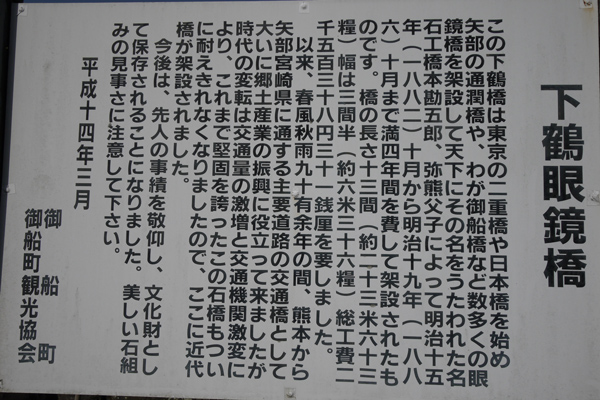 下鶴眼鏡橋
この下鶴橋は東京の二重橋や日本橋を始め
矢部の通潤橋や、わが御船橋など数多くの眼
鏡橋を架設して天下にその名をうたわれた名
石工橋本勘五郎、弥熊父子によって明治十五
年（一八八二）十月から明治十九年（一八八
六）十月まで満四年間を費して架設されたも
のです。橋の長さ十三間（約二十三米六十三
糎）幅は三間半（約六米三十六糎）総工費二
千五百三十八円三十一銭厘を要しました。
以来、春風秋雨九十有余年の間、熊本から
矢部宮崎県に通する主要道路の交通橋として
大いに郷土産業の振興に役立って来ましたが
時代の変転は交通量の激増と交通機関激変に
より、これまで堅固を誇ったこの石橋もつい
に耐えきれなくなりましたので、ここに近代
橋が架設されました。
今後は、先人の事績を敬仰し、文化財とし
て保存されることになりました。美しい石組
みの見事さに注意して下さい。
平成十四年三月
御船町
御船町観光協会